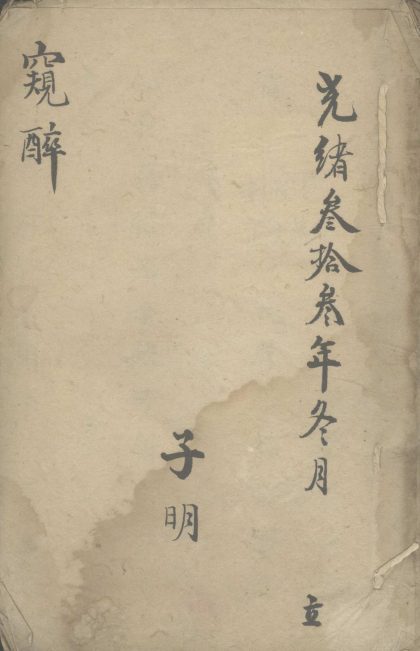 光緒叁拾叁年冬月 立
子明
窺醉